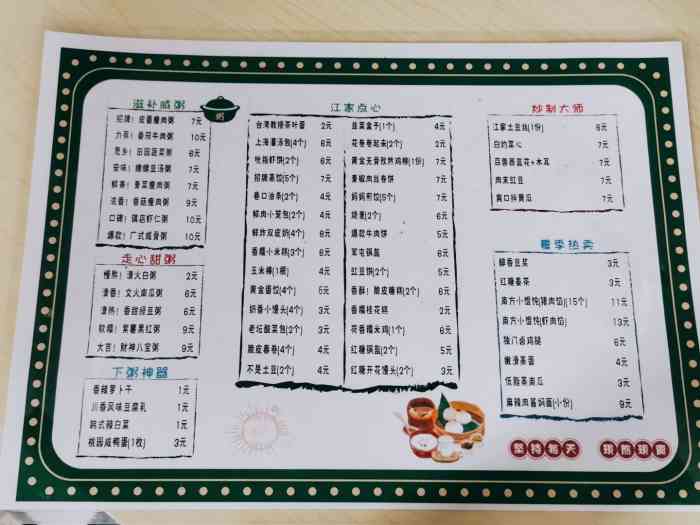 滋补咸粥
粥
招牌！皮蛋瘦肉粥 7元
力荐！香茄牛肉粥 10元
思乡！田园蔬菜粥 6元
安味！ 7元
鲜香！香菜瘦肉粥 7元
浓香！香菇瘦肉粥 9元
口碑！镇店虾仁粥 10元
爆款！广式咸骨粥 10元
走心甜粥
慢熬！清火白粥 2元
清香！文火南瓜粥 6元
清热！香甜绿豆粥 6元
软糯！紫薯黑红粥 9元
大吉！财神八宝粥 9元
下粥神器
香辣萝卜干 1元
川香风味豆腐乳 1元
韩式辣白菜 1元
桃园咸鸭蛋(1枚) 3元
江家点心
台湾教授茶叶蛋 2元
上海灌汤包(4个) 8元
吮指虾饼(2个) 6元
招牌蒸饺(5个) 7元
巷口油条(2个) 4元
鲜肉小笼包(2个) 4元
鲜炸双皮奶(4个) 8元
香糯小米糕(3个) 6元
玉米棒(1根) 4元
黄金蛋饺(4个) 5元
奶香小馒头(4个) 3元
老坛酸菜包(2个) 3元
脆皮春卷(2个) 4元
不是土豆(2个) 4元
韭菜盒子(1个) 4元
花卷卷起来(2个) 2元
黄金无骨孜然鸡柳(1份) 7元
青椒肉丝卷饼 7元
妈妈煎饺(5个) 7元
烧麦(2个) 6元
爆款牛肉饼 5元
军屯锅盔 8元
豇豆饼(2个) 5元
香酥！脆皮糍粑(2个) 6元
香糯桂花糕 2元
荷香糯米鸡(1个) 6元
红糖锅盔(2个) 5元
红糖开花馒头(2个) 3元
炒制大师
江家土豆丝(1份) 6元
白灼菜心 7元
百香西蓝花+木耳 7元
肉末豇豆 7元
爽口拌黄瓜 7元
夏季热卖
醇香豆浆 3元
红糖姜茶 3元
南方小馄饨(猪肉馅)(15个) 11元
南方小馄饨(虾肉馅) 13元
独门卤鸡腿 6元
嫩滑蒸蛋 4元
低脂蒸南瓜 3元
麻辣肉酱焖面(小份) 9元
坚持每天
现熬现卖